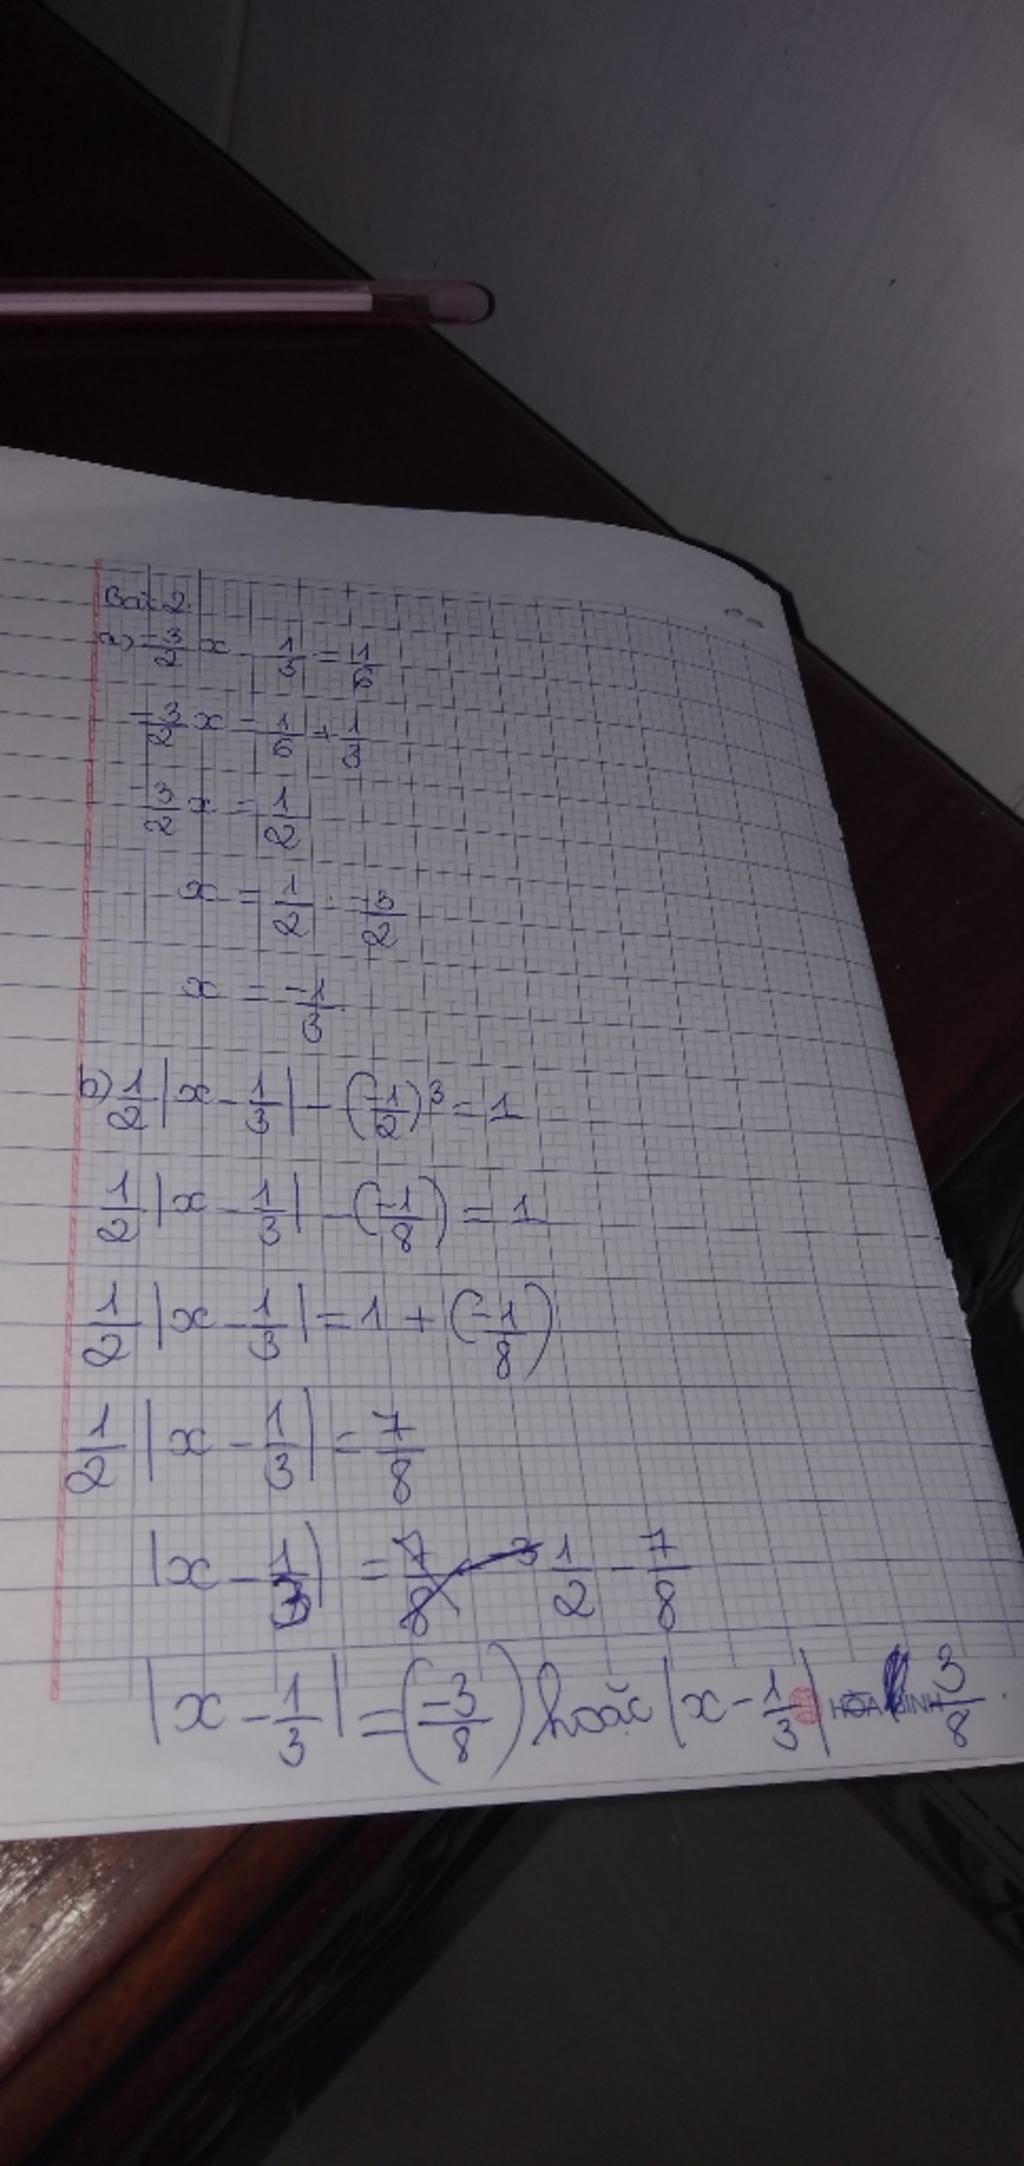 Bài 2
a) -3/2 x - 1/3 = 1/6
-3/2 x = 1/6 + 1/3
-3/2 x = 1/2
x = 1/2 : -3/2
x = -1/3
b) 1/2 |x - 1/3| - (-1/2)³ = 1
1/2 |x - 1/3| - (-1/8) = 1
1/2 |x - 1/3| = 1 + (-1/8)
1/2 |x - 1/3| = 7/8
|x - 1/3| = 1/2 - 7/8
|x - 1/3| = (-3/8) hoặc |x - 1/3| = 3/8